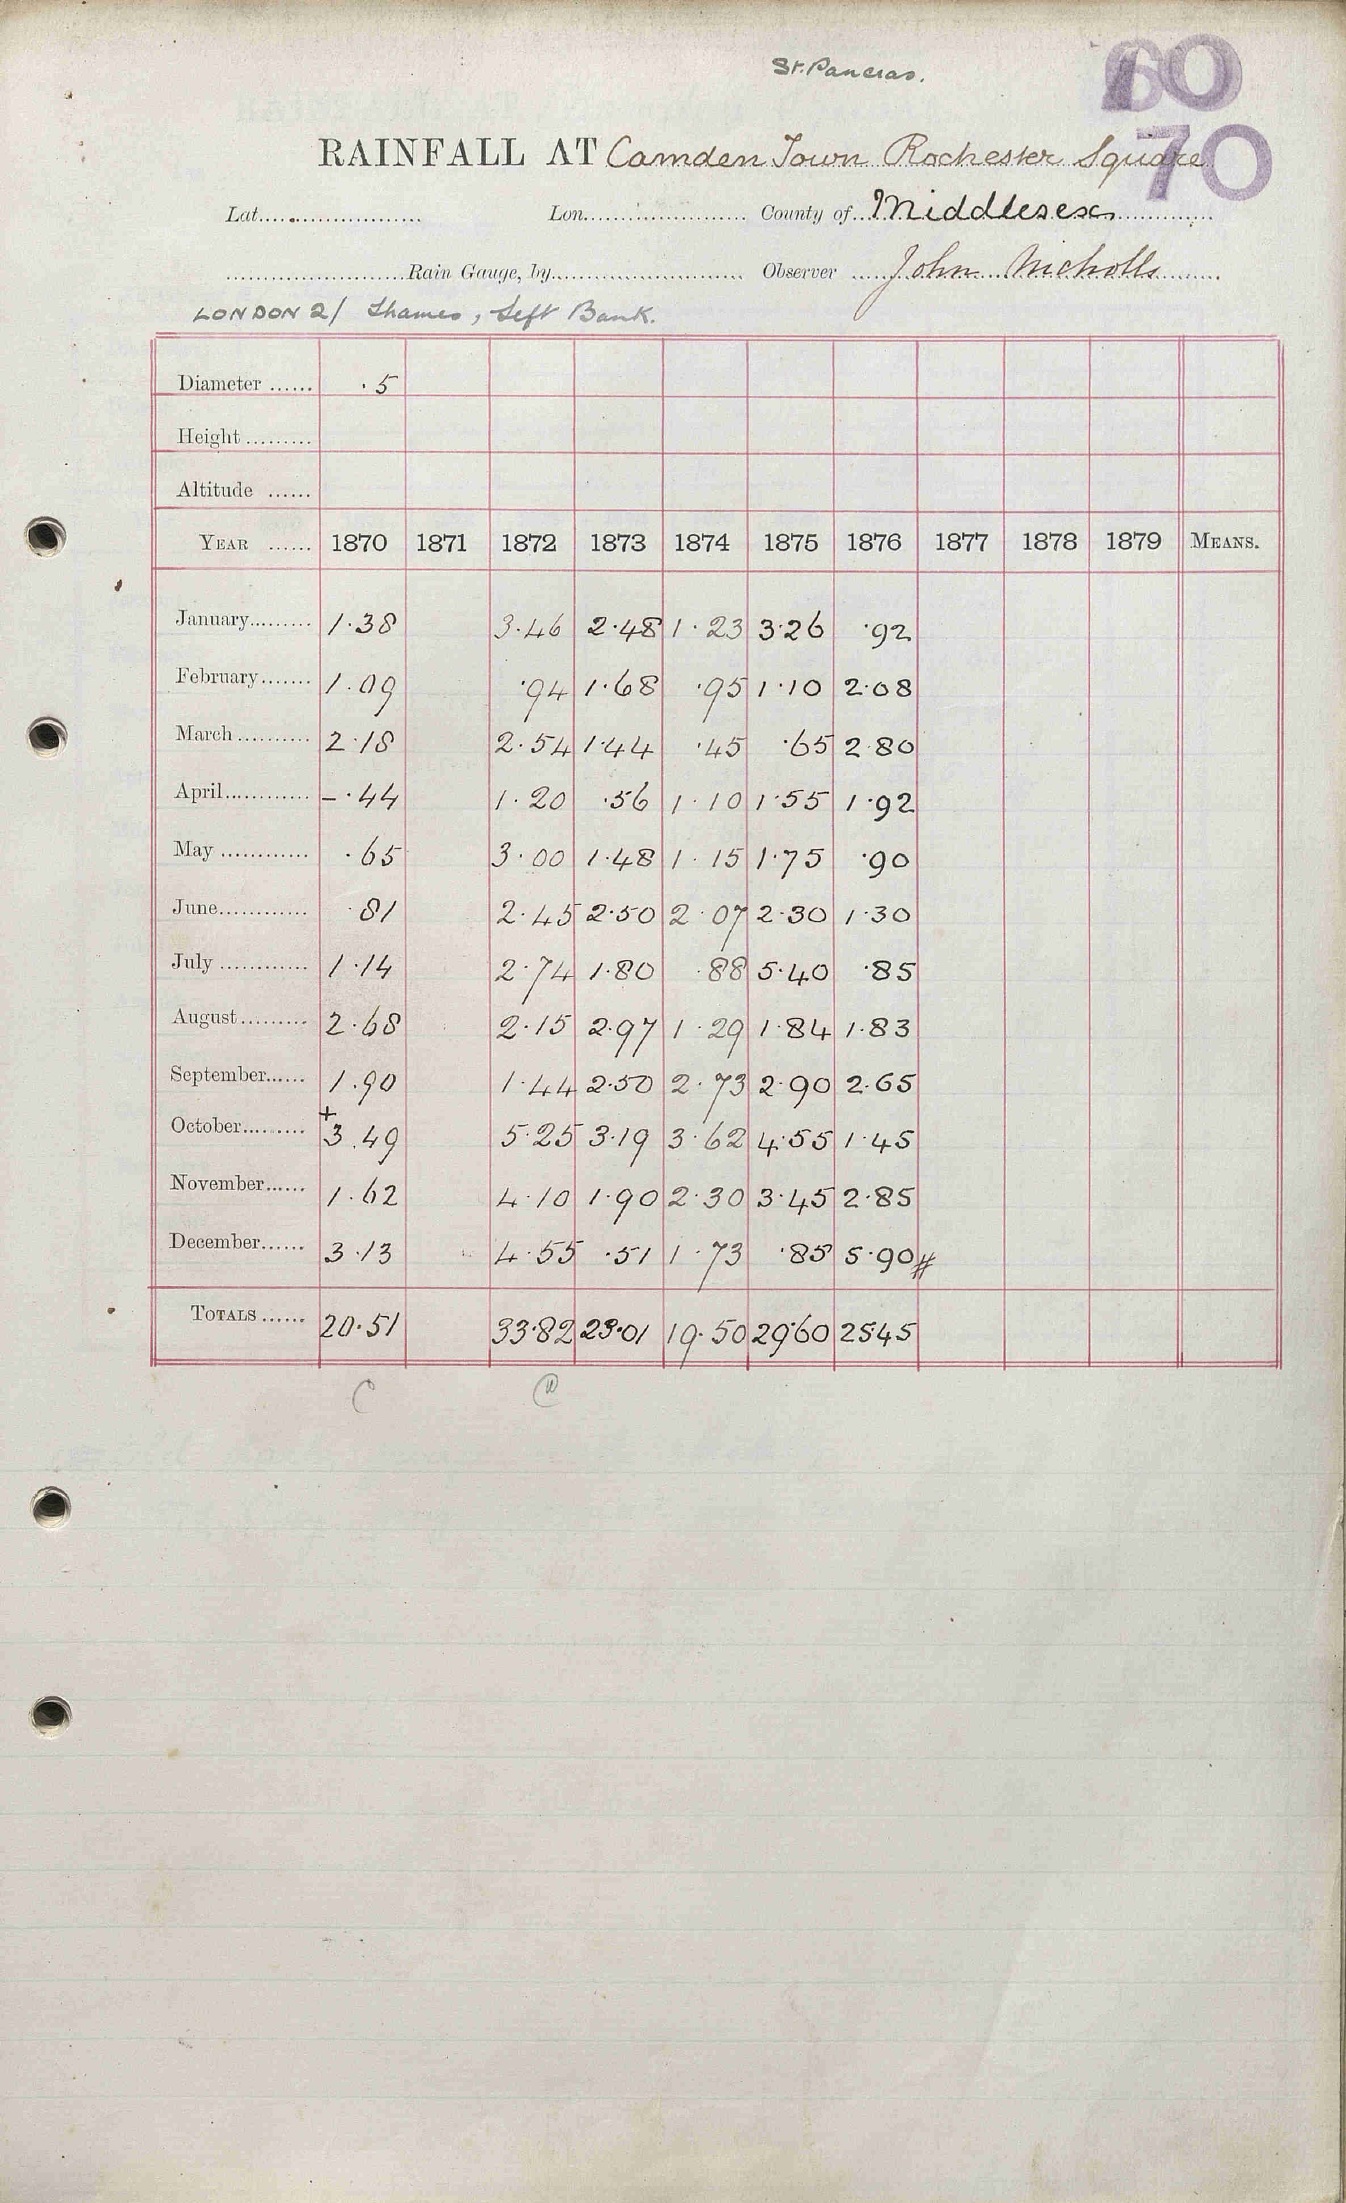 St. Pancras.
60
10
70
RAINFALL AT Camden Town Rochester Square
Lat...................... Lon...................... County of Middlesex
......................Rain Gauge, by...................... Observer John Nicholls
LONDON 2/ Thames, Left Bank.
Diameter ...... ·5
Height .........
Altitude ......
YEAR ...... 1870 1871 1872 1873 1874 1875 1876 1877 1878 1879 MEANS.
January......... 1·38 3·46 2·48 1·23 3·26 ·92
February....... 1·09 ·94 1·68 ·95 1·10 2·08
March .......... 2·18 2·54 1·44 ·45 ·65 2·80
April............ – ·44 1·20 ·56 1·10 1·55 1·92
May ............ ·65 3·00 1·48 1·15 1·75 ·90
June............ ·81 2·45 2·50 2·07 2·30 1·30
July ............ 1·14 2·74 1·80 ·88 5·40 ·85
August......... 2·68 2·15 2·97 1·29 1·84 1·83
September...... 1·90 1·44 2·50 2·73 2·90 2·65
October......... + 3·49 5·25 3·19 3·62 4·55 1·45
November...... 1·62 4·10 1·90 2·30 3·45 2·85
December...... 3·13 4·55 ·51 1·73 ·85 5·90 #
TOTALS ...... 20·51 33·82 23·01 19·50 29·60 25·45
C